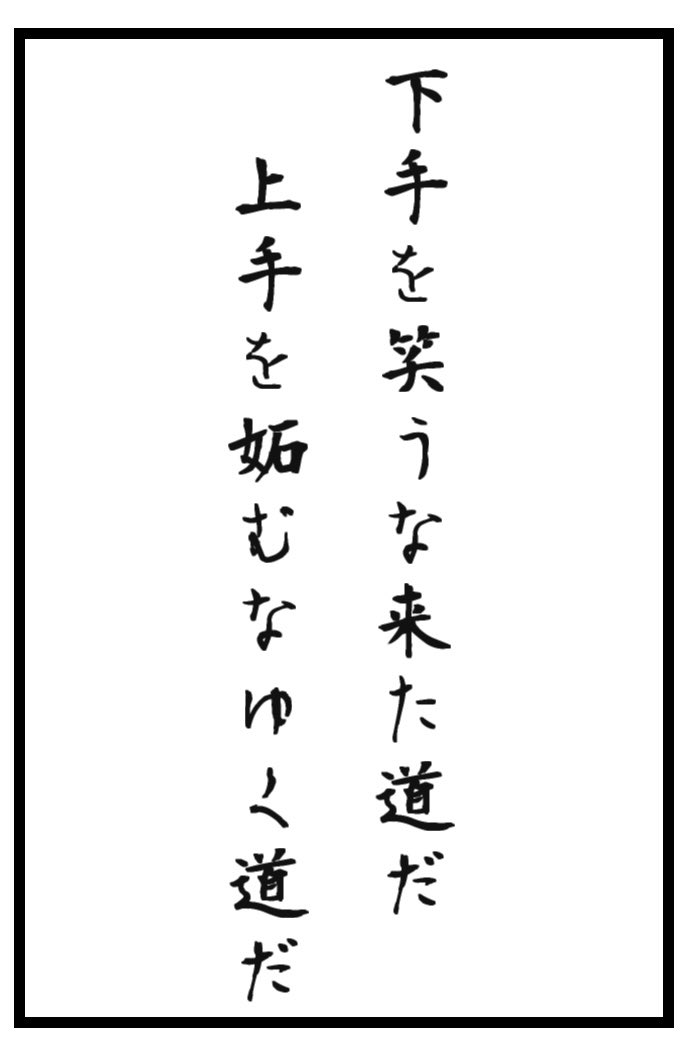 下手を笑うな来た道だ
上手を妬むなゆく道だ